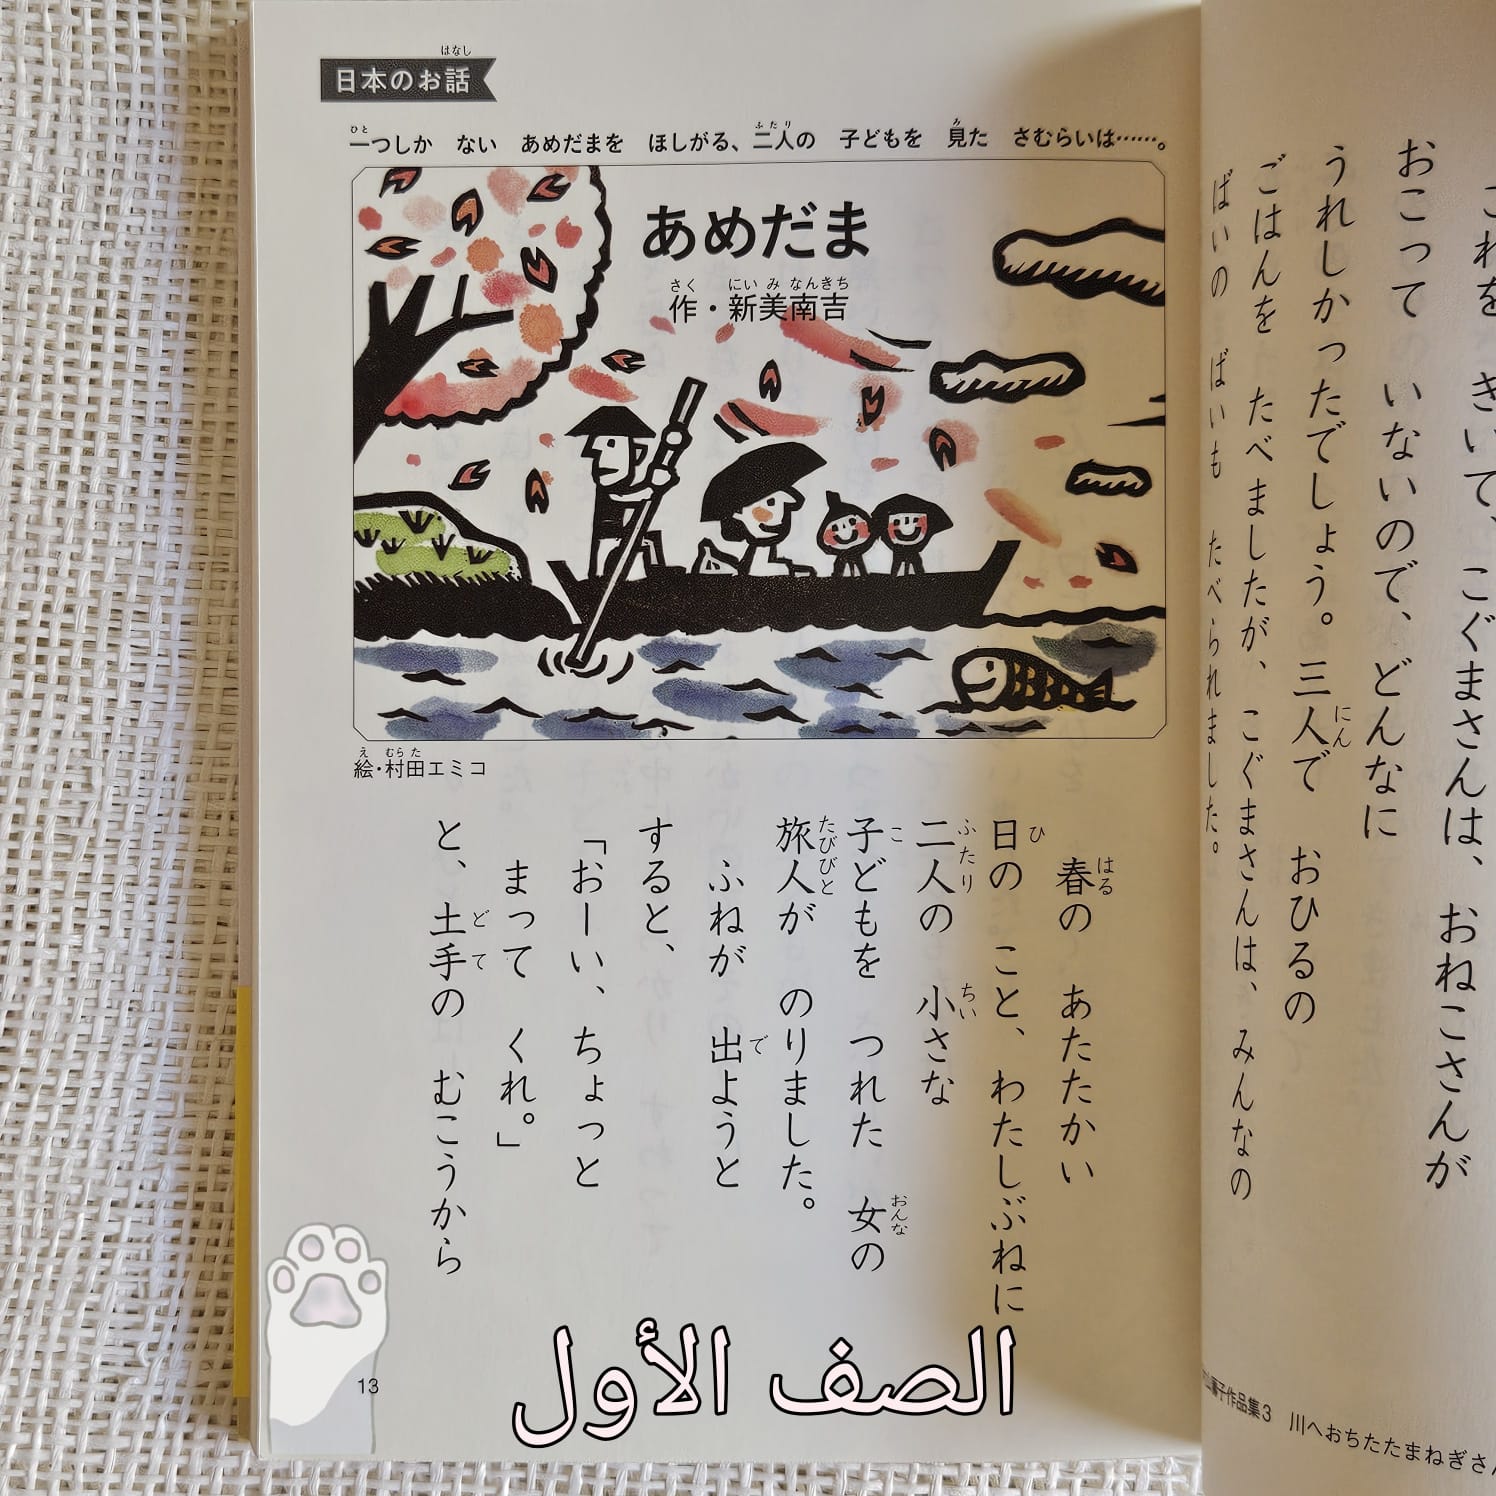 日本のお話
一つしか ない あめだまを ほしがる、二人の 子どもを 見た さむらいは……。
あめだま
作・新美南吉
絵・村田エミコ
春の あたたかい
日の こと、わたしぶねに
二人の 小さな
子どもを つれた 女の
旅人が のりました。
ふねが 出ようと
すると、
「おーい、ちょっと
まって くれ。」
と、土手の むこうから
13
الصف الأول
きいて、こぐまさんは、おねこさんが
おこって いないので、どんなに
うれしかったでしょう。三人で おひるの
ごはんを たべましたが、こぐまさんは、みんなの
ばいの ばいも たべられました。
子作品集3 川へおちたたまねぎさん